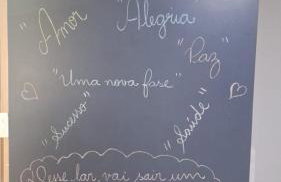 "Amor"
"Alegria"
"Paz"
"Uma nova fase"
"Sucesso"
"Saúde"
Desse lar, vai sair um